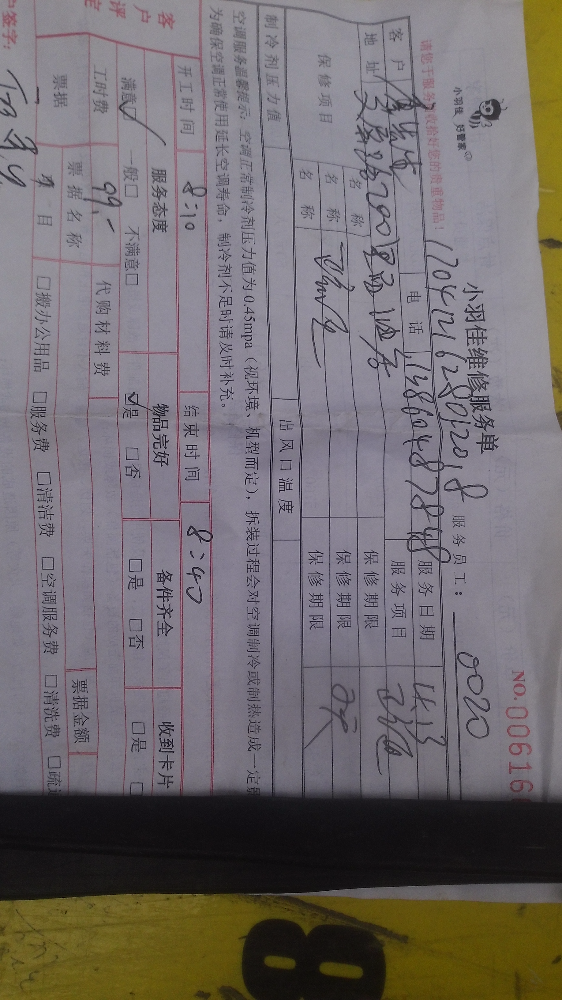 小羽佳 好管家
小羽佳维修服务单
NO.00616
请您于服务前收拾好您的贵重物品!
170412162801201.8
服务员工: 0020
客户
电话 13860487848
服务日期 4.13
地址
服务项目
保修项目
名称
保修期限
名称
保修期限
名称
保修期限
制冷剂压力值
出风口温度
空调服务温馨提示:空调正常制冷剂压力值为0.45mpa(视环境、机型而定),拆装过程会对空调制冷或制热造成一定
为确保空调正常使用延长空调寿命,制冷剂不足时请及时补充。
开工时间 8:10 结束时间 8:40
客户评
服务态度 物品完好 备件齐全 收到卡片
满意☑ 一般□ 不满意□ ☑是 □否 □是 □否 □是
工时费 99.- 代购材料费
票据 票据名称 票据金额
月 日 □搬办公用品 □服务费 □清洁费 □空调服务费 □清洗费 □疏
户签字:
8